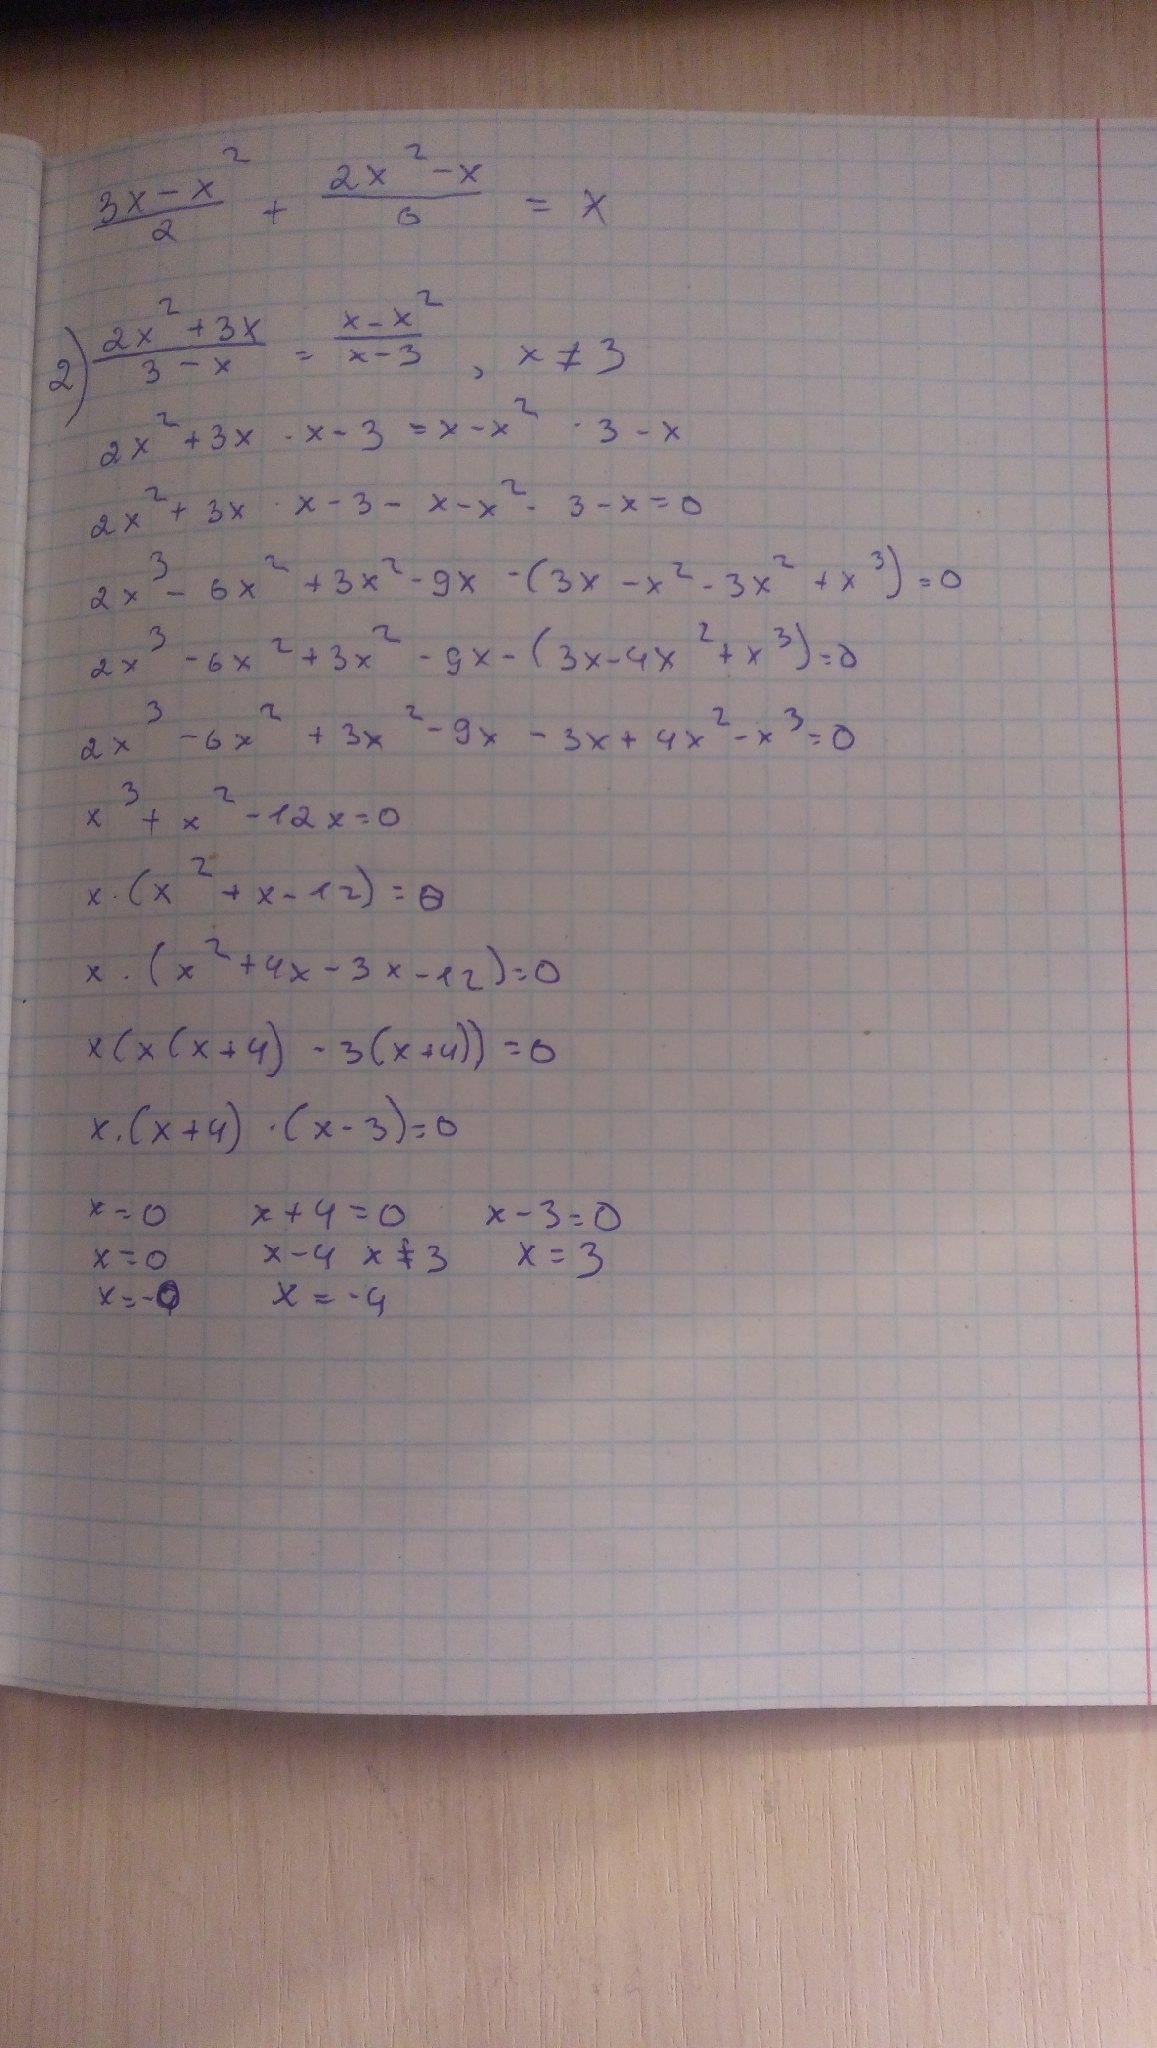 (3x-x²)/2 + (2x²-x)/6 = x
2) (2x²+3x)/(3-x) = (x-x²)/(x-3), x≠3
2x²+3x·x-3=x-x²·3-x
2x²+3x·x-3-x-x²·3-x=0
2x³-6x²+3x²-9x-(3x-x²-3x²+x³)=0
2x³-6x²+3x²-9x-(3x-4x²+x³)=0
2x³-6x²+3x²-9x-3x+4x²-x³=0
x³+x²-12x=0
x·(x²+x-12)=0
x·(x²+4x-3x-12)=0
x(x(x+4)-3(x+4))=0
x·(x+4)·(x-3)=0
x=0 x+4=0 x-3=0
x=0 x-4 x≠3 x=3
x=-0 x=-4